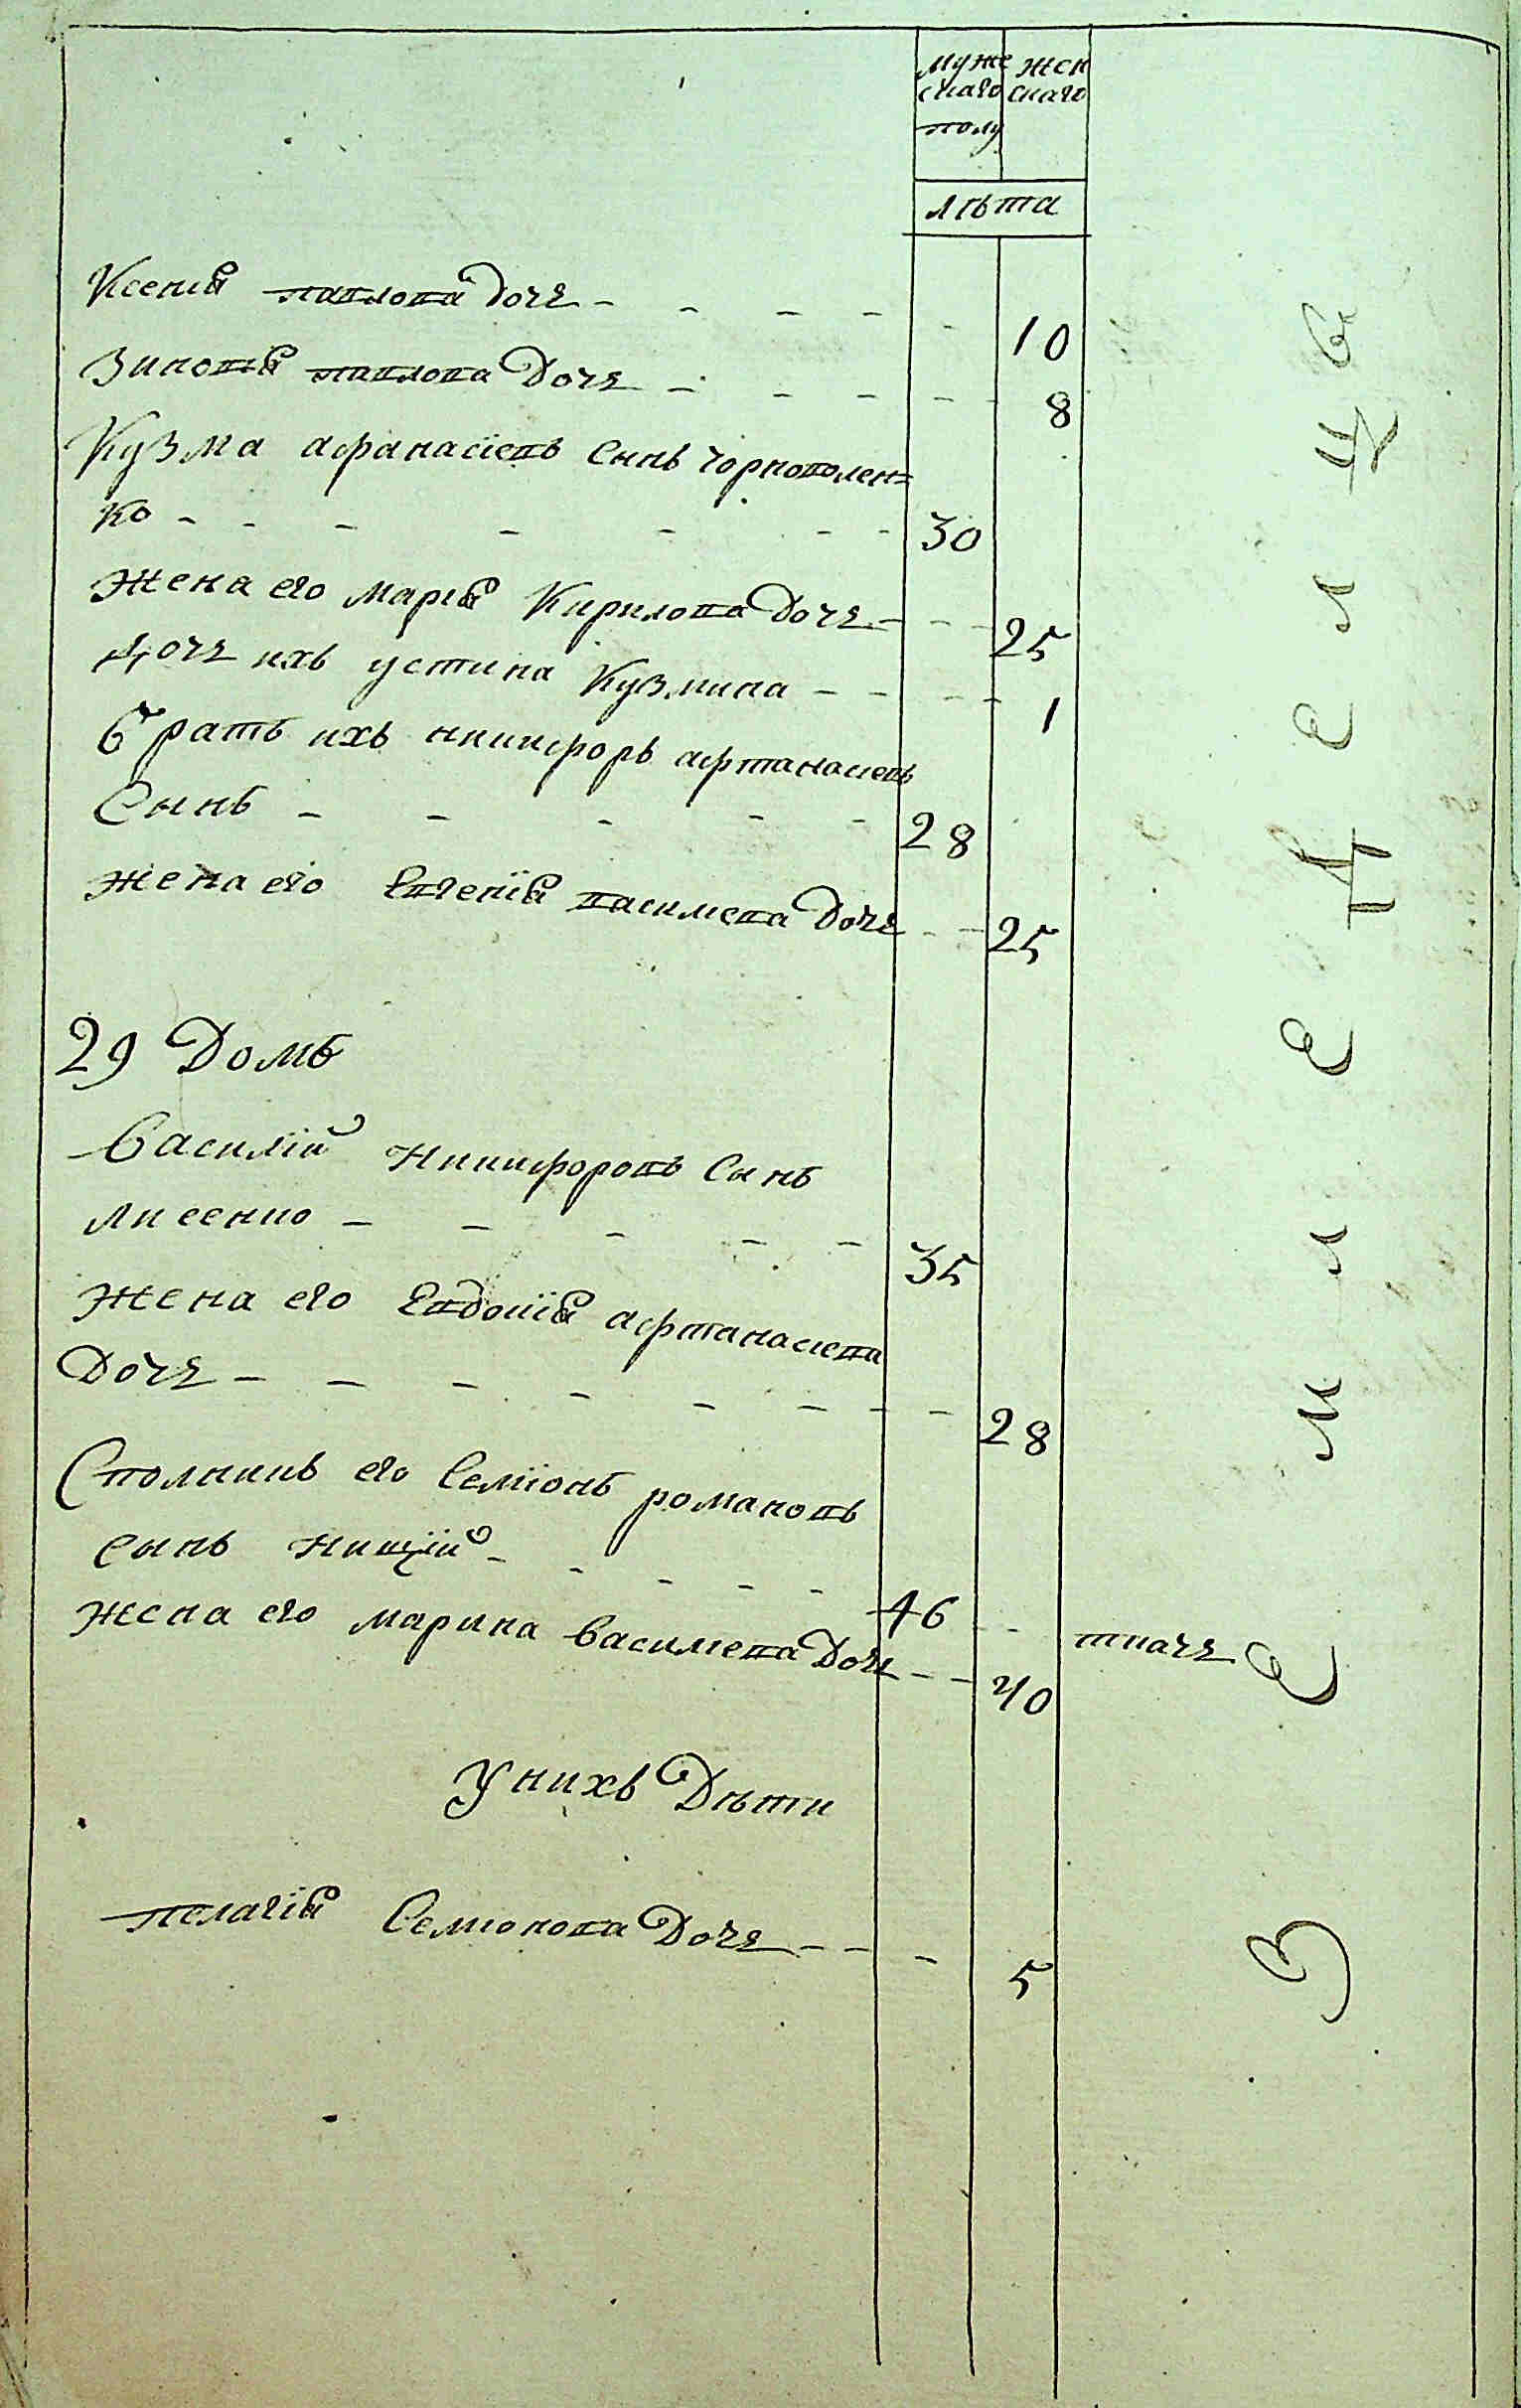 муже жен
скаго скаго
полу
лѣта
Ксения павлова дочь - - - - - 10
Зиновия павлова Дочь - - - - - 8
Кузма афанасіевъ Сынъ чорноволен=
ко - - - - - - 30
жена его мария Кирилова Дочь - - - 25
Дочь ихъ устина Кузмина - - - - 1
братъ ихъ никифоръ афтанасіевъ
Сынъ - - - - - 28
жена его Евгенїя василева Дочь - - 25
29 Домъ
Василїй Никифоровъ Сынъ
лисенко - - - - - 35
жена его Евдокїя афтанасіева
Дочь - - - - - - - - 28
Столникъ его Семїонъ романовъ
сынъ нищїй - - - - - 46 - - ткачь
жена его марина василиева Дочь - - 40
У нихъ Дѣти
пелагїя Семіонова Дочь - - - 5
Земледелцъ